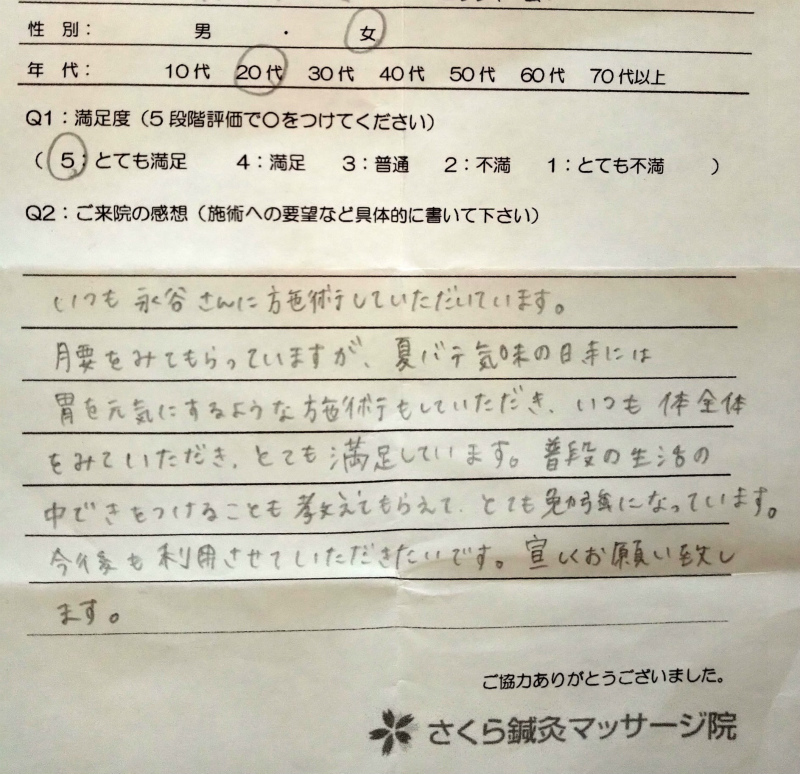 性 別： 男 ・ 女
年 代： 10代 20代 30代 40代 50代 60代 70代以上
Q1：満足度（5段階評価で〇をつけてください）
（ 5：とても満足 4：満足 3：普通 2：不満 1：とても不満 ）
Q2：ご来院の感想（施術への要望など具体的に書いて下さい）
いつも 永谷さんに施術していただいています。
腰をみてもらっていますが、夏バテ気味の日寺には
胃を元気にするような施術もしていただき、いつも 体全体
をみていただき、とても満足しています。普段の生活の
中できをつけることも教えてもらえて、とても勉強になっています。
今後も利用させていただきたいです。宜しくお願い致し
ます。
ご協力ありがとうございました。
さくら鍼灸マッサージ院